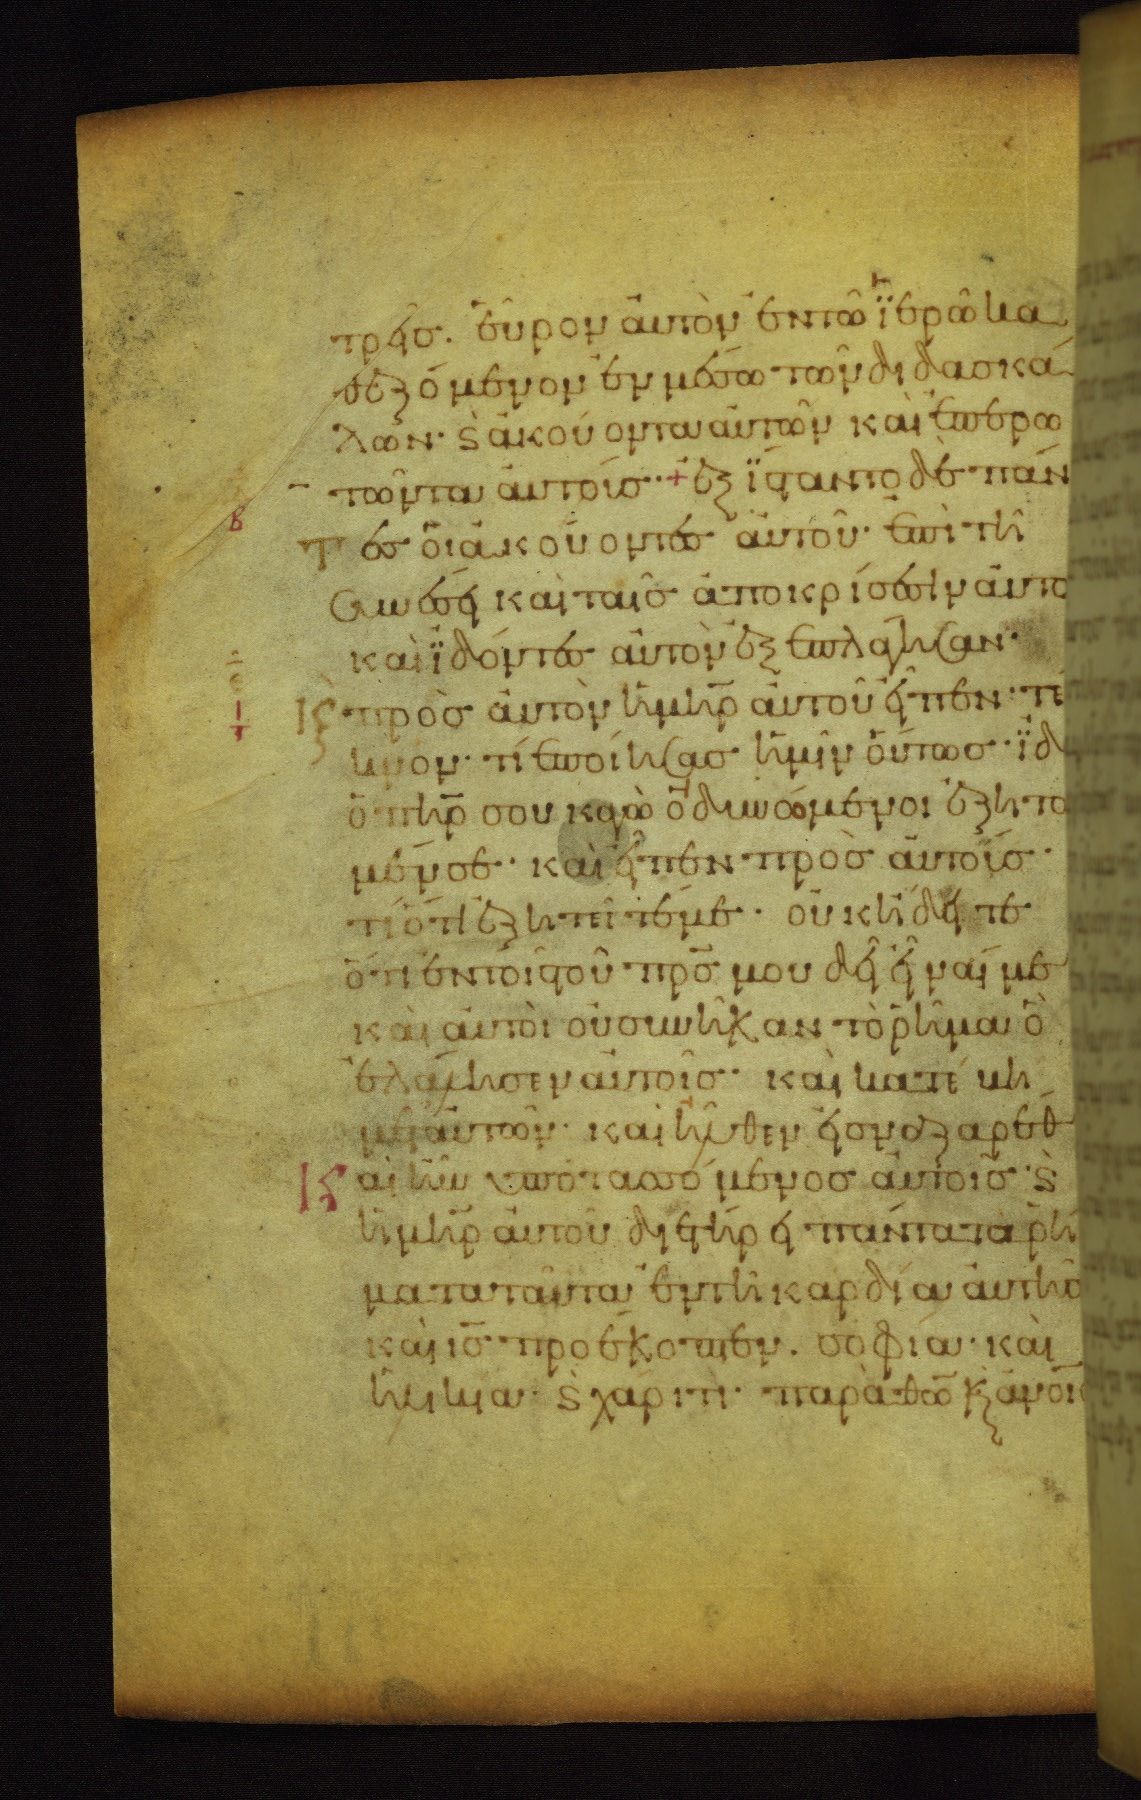 τρεῖσ. εὗρον αὐτὸν ἐν τῶ ἱερῶ κα
θεζόμενον ἐν μέσω τῶν διδασκά
λων· ϗ ἀκούοντα αὐτῶν καὶ ἐπερω
τῶντα αὐτούσ· + ἐξίσταντο δὲ πάν
β
τεσ οἱ ἀκούοντεσ αὐτοῦ· ἐπὶ τῆ
συνέσει καὶ ταῖσ ἀποκρίσεσιν αὐτο
καὶ ἰδόντεσ αὐτὸν ἐξεπλάγησαν·
ιϛ πρὸσ αὐτὸν ἡ μηρ αὐτοῦ εἶπεν· τέ
κνον· τί ἐποίησασ ἡμῖν οὕτωσ· ἰδ
ὁ πηρ σου κἀγὼ ὀδυνώμενοι ἐζητο
μέν σε· καὶ εἶπεν πρὸσ αὐτούσ·
τί ὅτι ἐζητεῖτέ με· οὐκ ἤδειτε
ὅτι ἐν τοῖσ τοῦ πρσ μου δεῖ εἶναί με
καὶ αὐτοὶ οὐ συνῆκαν τὸ ῥῆμα ὃ
ἐλάλησεν αὐτοῖσ· καὶ κατέβη
μετ αὐτῶν· καὶ ἦλθεν εἰσ ναζαρέθ
ιϛ αὶ ἦν ὑποτασσόμενοσ αὐτοῖσ· ϗ
ἡ μηρ αὐτοῦ διετήρει πάντα τα ῥή
ματα ταῦτα ἐν τῆ καρδία αὐτῆσ
καὶ ισ προέκοπτεν. σοφία· καὶ
ἡλικία· ϗ χάριτι· παρὰ θω ϗ ἀνοισ